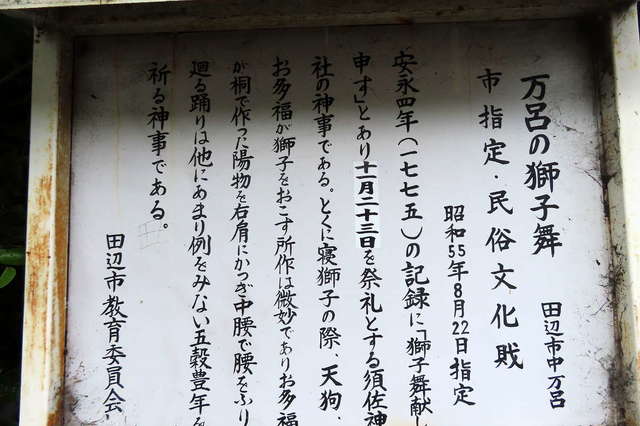 万呂の獅子舞
田辺市中万呂
市指定・民俗文化財
昭和55年8月22日指定
安永四年(一七七五)の記録に「獅子舞献し
申す」とあり十一月二十三日を祭礼とする須佐神
社の神事である。とくに寝獅子の際、天狗、
お多福が獅子をおこす所作は微妙でありお多福
が桐で作った陽物を右肩にかつぎ中腰で腰をふり
廻る踊りは他にあまり例をみない五穀豊年を
祈る神事である。
田辺市教育委員会